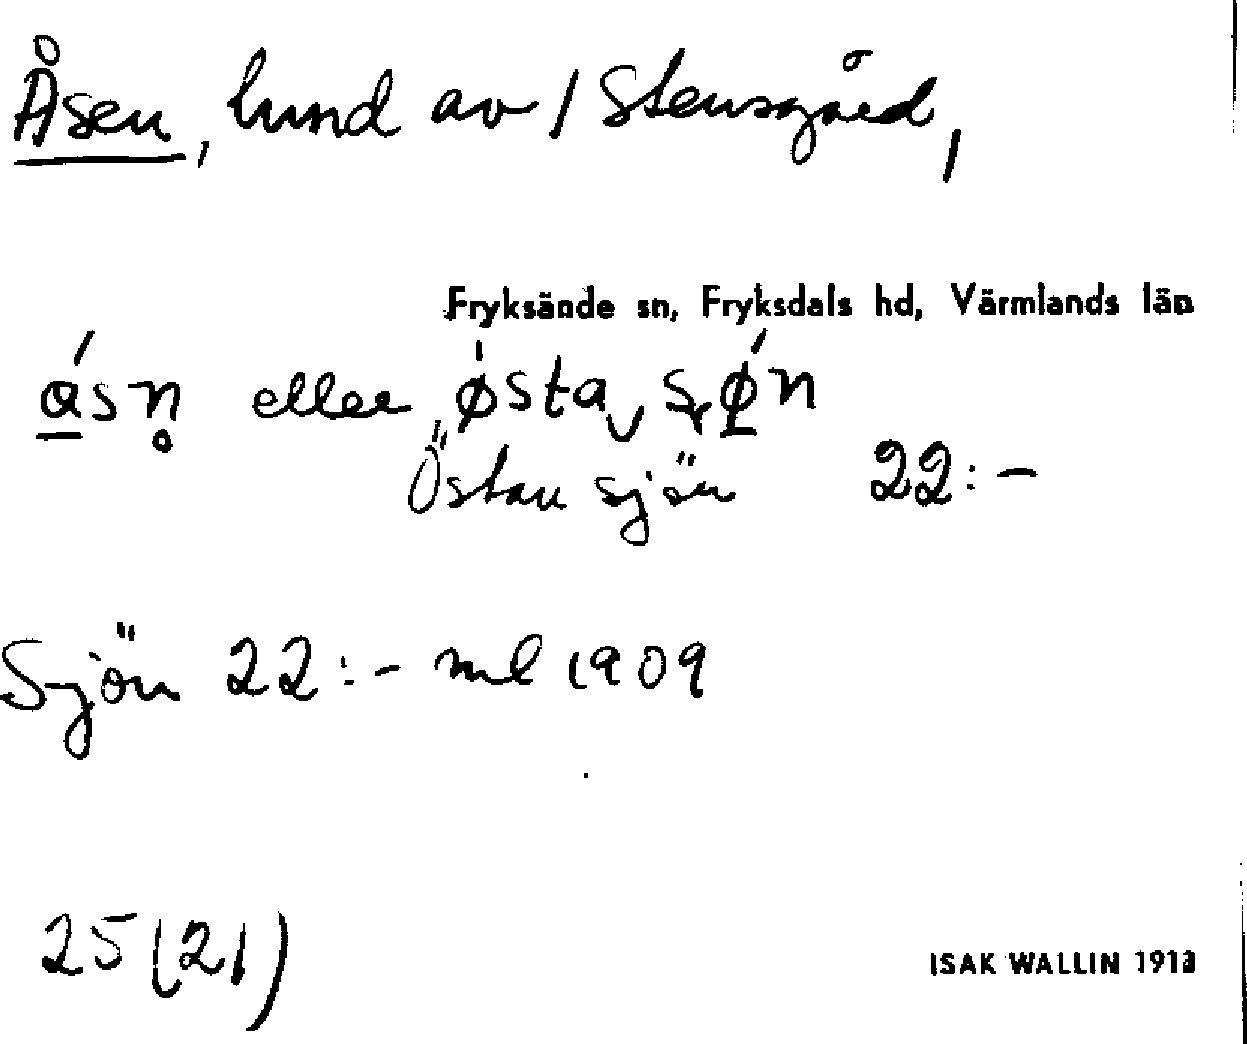 Åsen, lund av / Stensgård,
Fryksände sn, Fryksdals hd, Värmlands län
eller
Östan sjön 22:-
Sjön 22:- ml 1909
25 (21)
ISAK WALLIN 1913